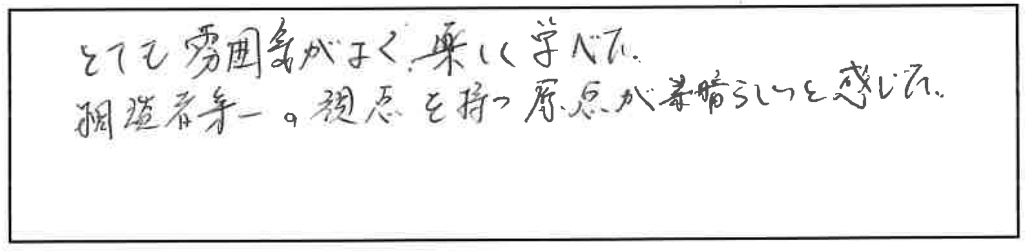 とても雰囲気がよく、楽しく学べた。
相談者第一の視点を持つ原点が素晴らしいと感じた。